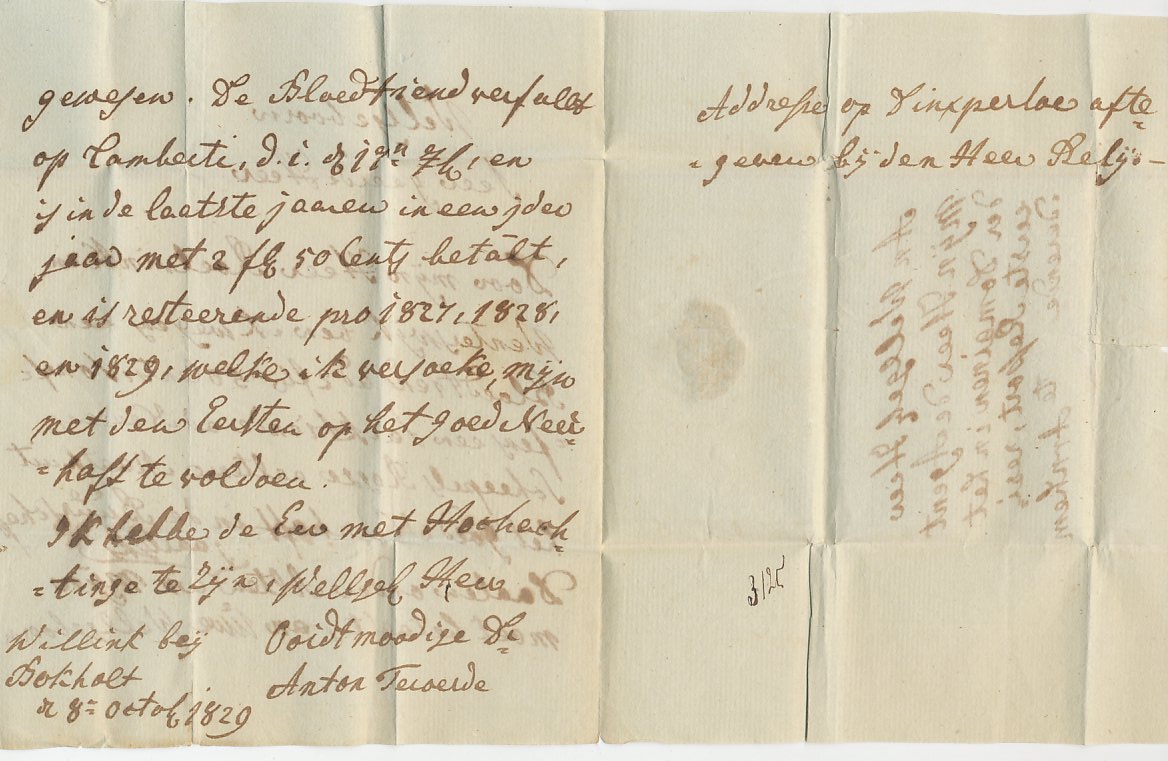 gewesen. De Bloedtiend verfallt
op Lamberti, d. i. d 17n 7b, en
is in de laatste jaaren in een jder
jaar met 2 fl 50 Cents betalt,
en is resteerende pro 1827, 1828,
en 1829, welke ik versoeke, mijn
met den Eersten op het goed Neer=
=hoff te voldoen.
Ik hebbe de Eer met Hochach=
=tinge te Zijn, Wellgeb Heer
Willink beij Ooidtmoodige Dr
Bokholt Anton Terwerde
d 8n Octob 1829
Addresse op Dinxperloe afte=
=geven bij den Heer
3125